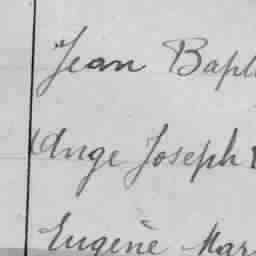 Jean Bapt
Ange Joseph
Eugène Mar